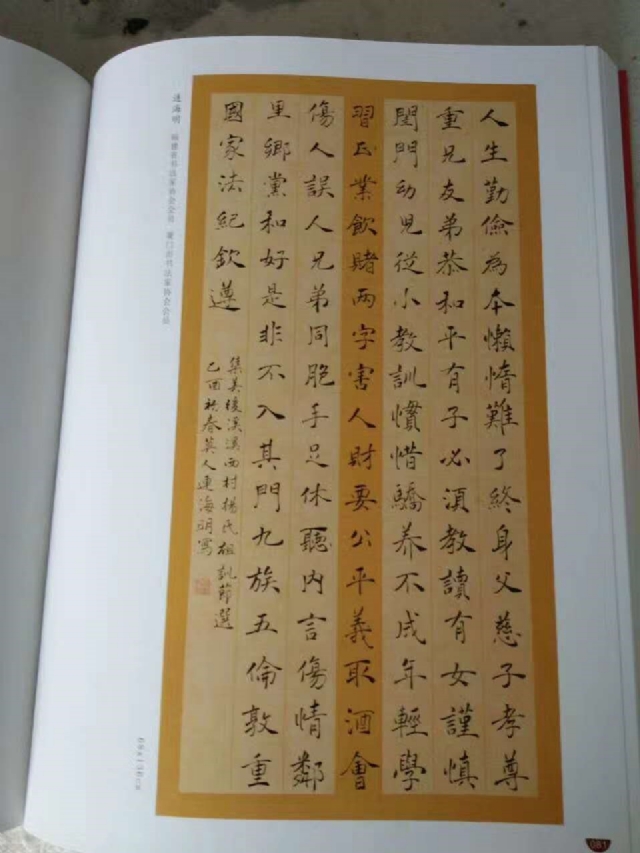 人生勤儉為本懶惰難了終身父慈子孝尊
重兄友弟恭和平有子必須教讀有女謹慎
閨門幼兒從小教訓慣惜驕养不成年輕學
習正業飲賭两字害人財要公平義取酒會
傷人誤人兄弟同胞手足休聽內言傷情鄰
里鄉黨和好是非不入其門九族五倫敦重
國家法紀欽遵
集美後溪溪西村楊氏祖訓節選
春英人連海明寫
连海明 福建省书法家协会会员 厦门市书法家协会会员
081